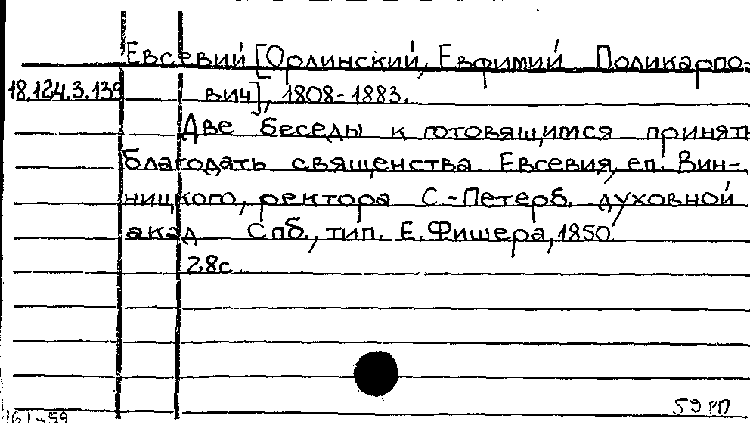 Евсевий [Орлинский, Евфимий Поликарпо-
18.124.3.139 вич], 1808-1883.
Две беседы к готовящимся принять
благодать священства Евсевия, еп. Вин-
ницкого, ректора С.-Петерб. духовной
акад Спб., тип. Е. Фишера, 1850.
28с.
59 РП
161-59